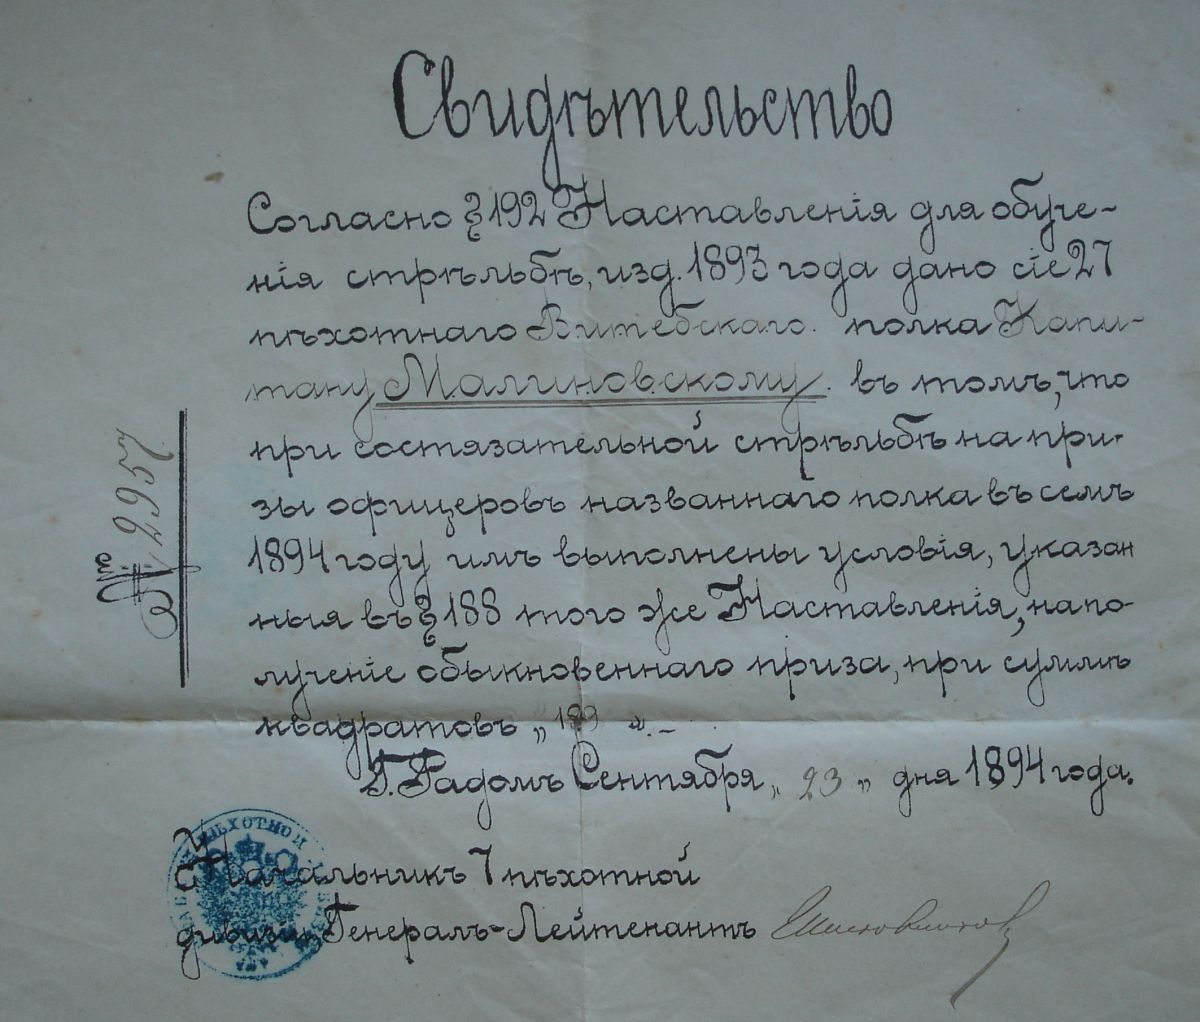 Свидѣтельство
Согласно § 192 Наставленія для обуче-
нія стрѣльбѣ, изд. 1893 года дано сіе 27
пѣхотнаго Витебскаго полка Капи-
тану Малиновскому въ томъ, что
при состязательной стрѣльбѣ на при-
зы офицеровъ названнаго полка въ семъ
1894 году имъ выполнены условія, указан
ныя въ § 188 того же Наставленія, на по-
лученіе обыкновеннаго приза, при суммѣ
квадратовъ „ 189 ".–
Г. Радомъ Сентября „ 23 „ дня 1894 года.
№ 2957
Начальникъ 7 пѣхотной
дивизіи, Генералъ-Лейтенантъ
ПѢХОТНОЙ